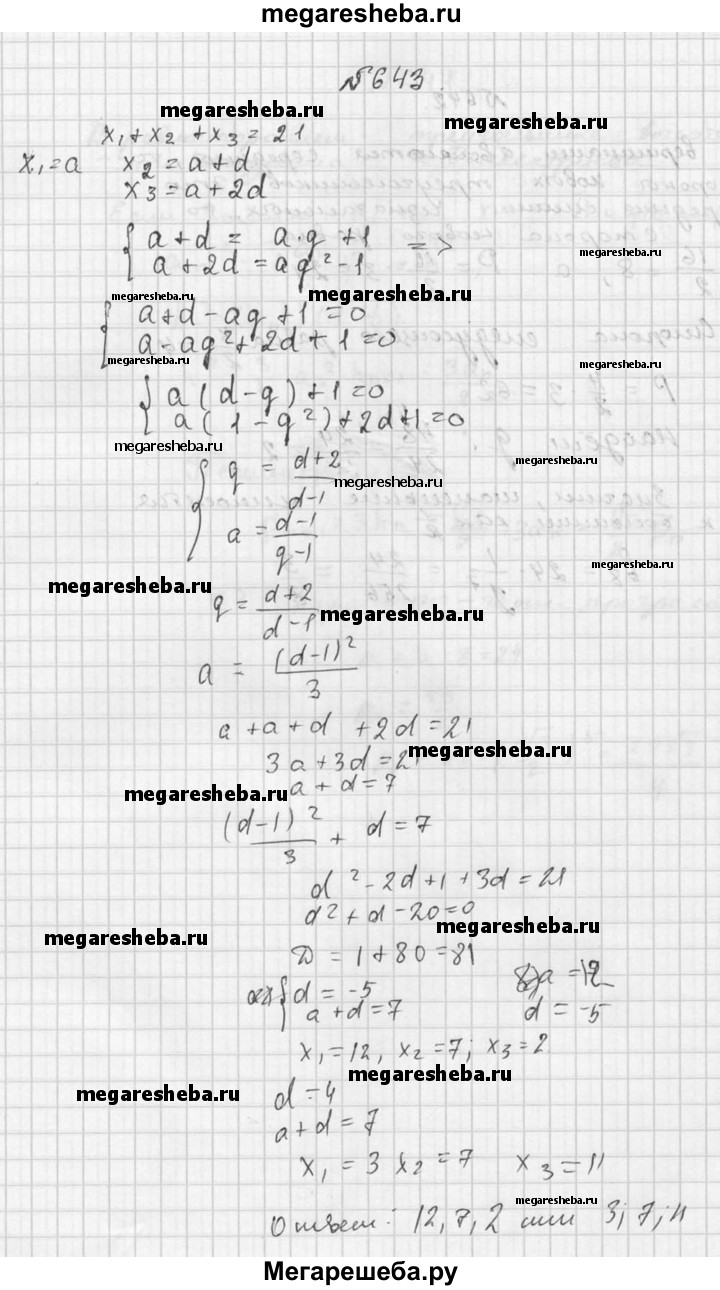 megaresheba.ru
№643
megaresheba.ru
megaresheba.ru
x₁+x₂+x₃=21
x₁=a x₂=a+d
x₃=a+2d
{ a+d= a·q+1 =>
a+2d=aq²-1
megaresheba.ru
megaresheba.ru
megaresheba.ru
{ a+d-aq+1=0
a-aq²+2d+1=0
megaresheba.ru
megaresheba.ru
{ a(d-q)+1=0
a(1-q²)+2d+1=0
megaresheba.ru
{ q = d+2/d-1
megaresheba.ru
a = d-1/q-1
megaresheba.ru
megaresheba.ru
q = d+2/d-1
megaresheba.ru
a = (d-1)²/3
a+a+d+2d=21
megaresheba.ru
3a+3d=21
a+d=7
megaresheba.ru
(d-1)²/3 + d=7
d²-2d+1+3d=21
d²+d-20=0
megaresheba.ru
megaresheba.ru
D=1+80=81
{ d=-5 a=12
a+d=7 d=-5
x₁=12, x₂=7; x₃=2
megaresheba.ru
megaresheba.ru
d=4
a+d=7
x₁=3 x₂=7 x₃=11
megaresheba.ru
Ответ: 12,7,2 или 3;7;11
megaresheba.ru
Мегарешеба.ру